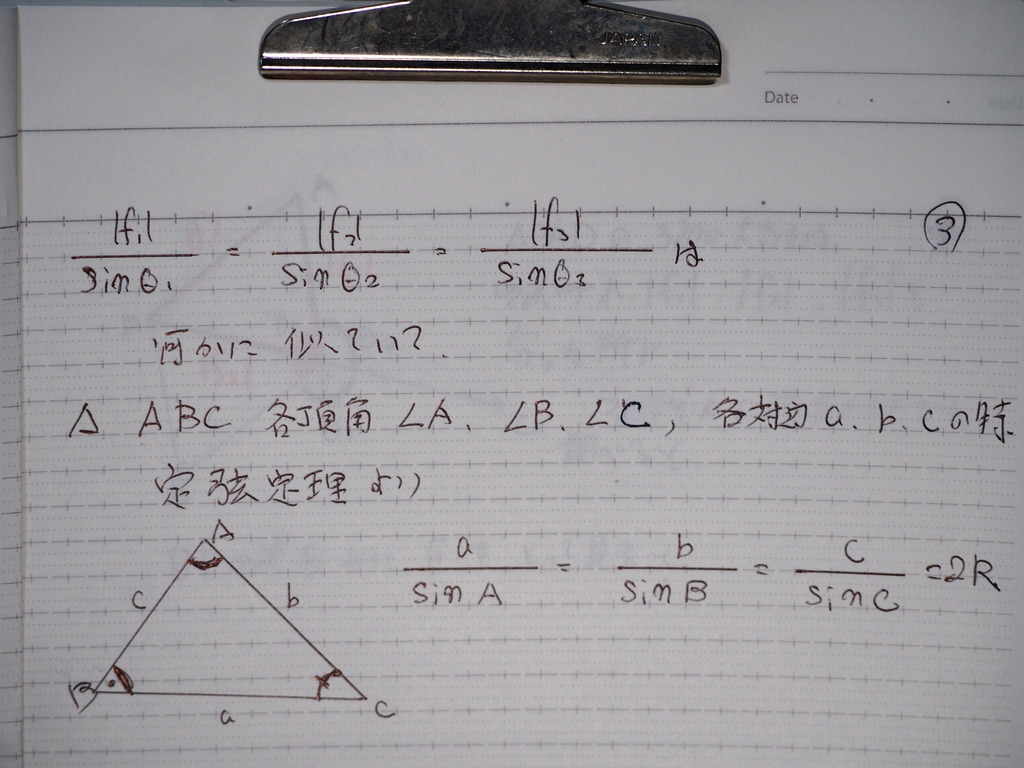 JAPAN
Date
|f₁|/sinθ₁ = |f₂|/sinθ₂ = |f₃|/sinθ₃ は
③
何かに 似ていて.
△ ABC 各頂角 ∠A、∠B、∠C, 各対辺 a、b、cの時
定弦定理 より
a/sinA = b/sinB = c/sinC = 2R
A
c b
B C
a